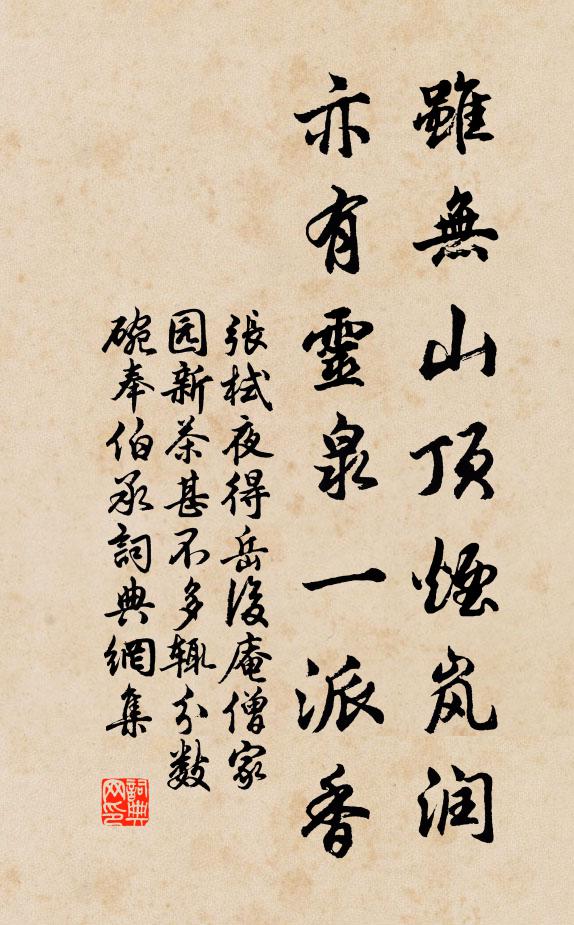 雖無山頂煙岚润
亦有靈泉一派香
張栻夜得岳後庵僧家
园新茶甚不多辄分数
碗奉伯承詞典網集
詞典网印